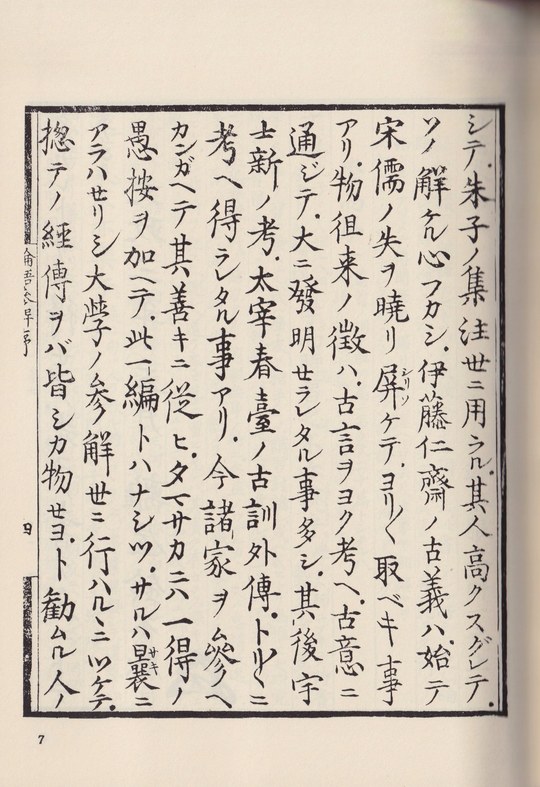 シテ．朱子ノ集注世ニ用ラル．其人高クスグレテ．
ソノ解ケル心フカシ．伊藤仁齋ノ古義ハ．始テ
宋儒ノ失ヲ曉リ屏ケテ．ヨリ〱取ベキ事
シリソ
アリ．物徂来ノ徴ハ．古言ヲヨク考ヘ．古意ニ
通ジテ．大ニ發明セラレタル事多シ．其後宇
士新ノ考．太宰春臺ノ古訓外傳．トリ〱ニ
考ヘ得ラレタル事アリ．今諸家ヲ參ヘ
カンガヘテ其善キニ從ヒ．タマサカニハ一得ノ
愚按ヲ加ヘテ．此一編トハナシツ．サルハ曩ニ
サキ
アラハセリシ大學ノ参解世ニ行ハルヽニツケテ．
揔テノ經傳ヲバ皆シカ物セヨ．ト勸ムル人ノ
論語參解序
四
7